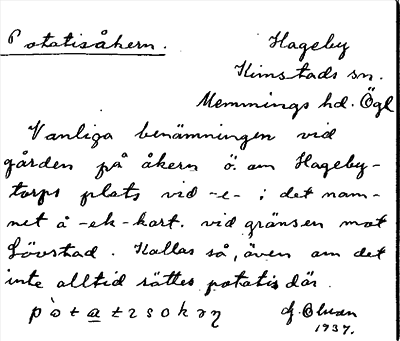 Potatisåkern. Hageby
Kimstads sn.
Memmings hd. Ögl
Vanliga benämningen vid
gården på åkern ö. om Hageby-
torps plats vid -e- i det nam-
net å -ek-kart. vid gränsen mot
Lövstad. Kallas så, även om det
inte alltid sättes potatis där.
1937.